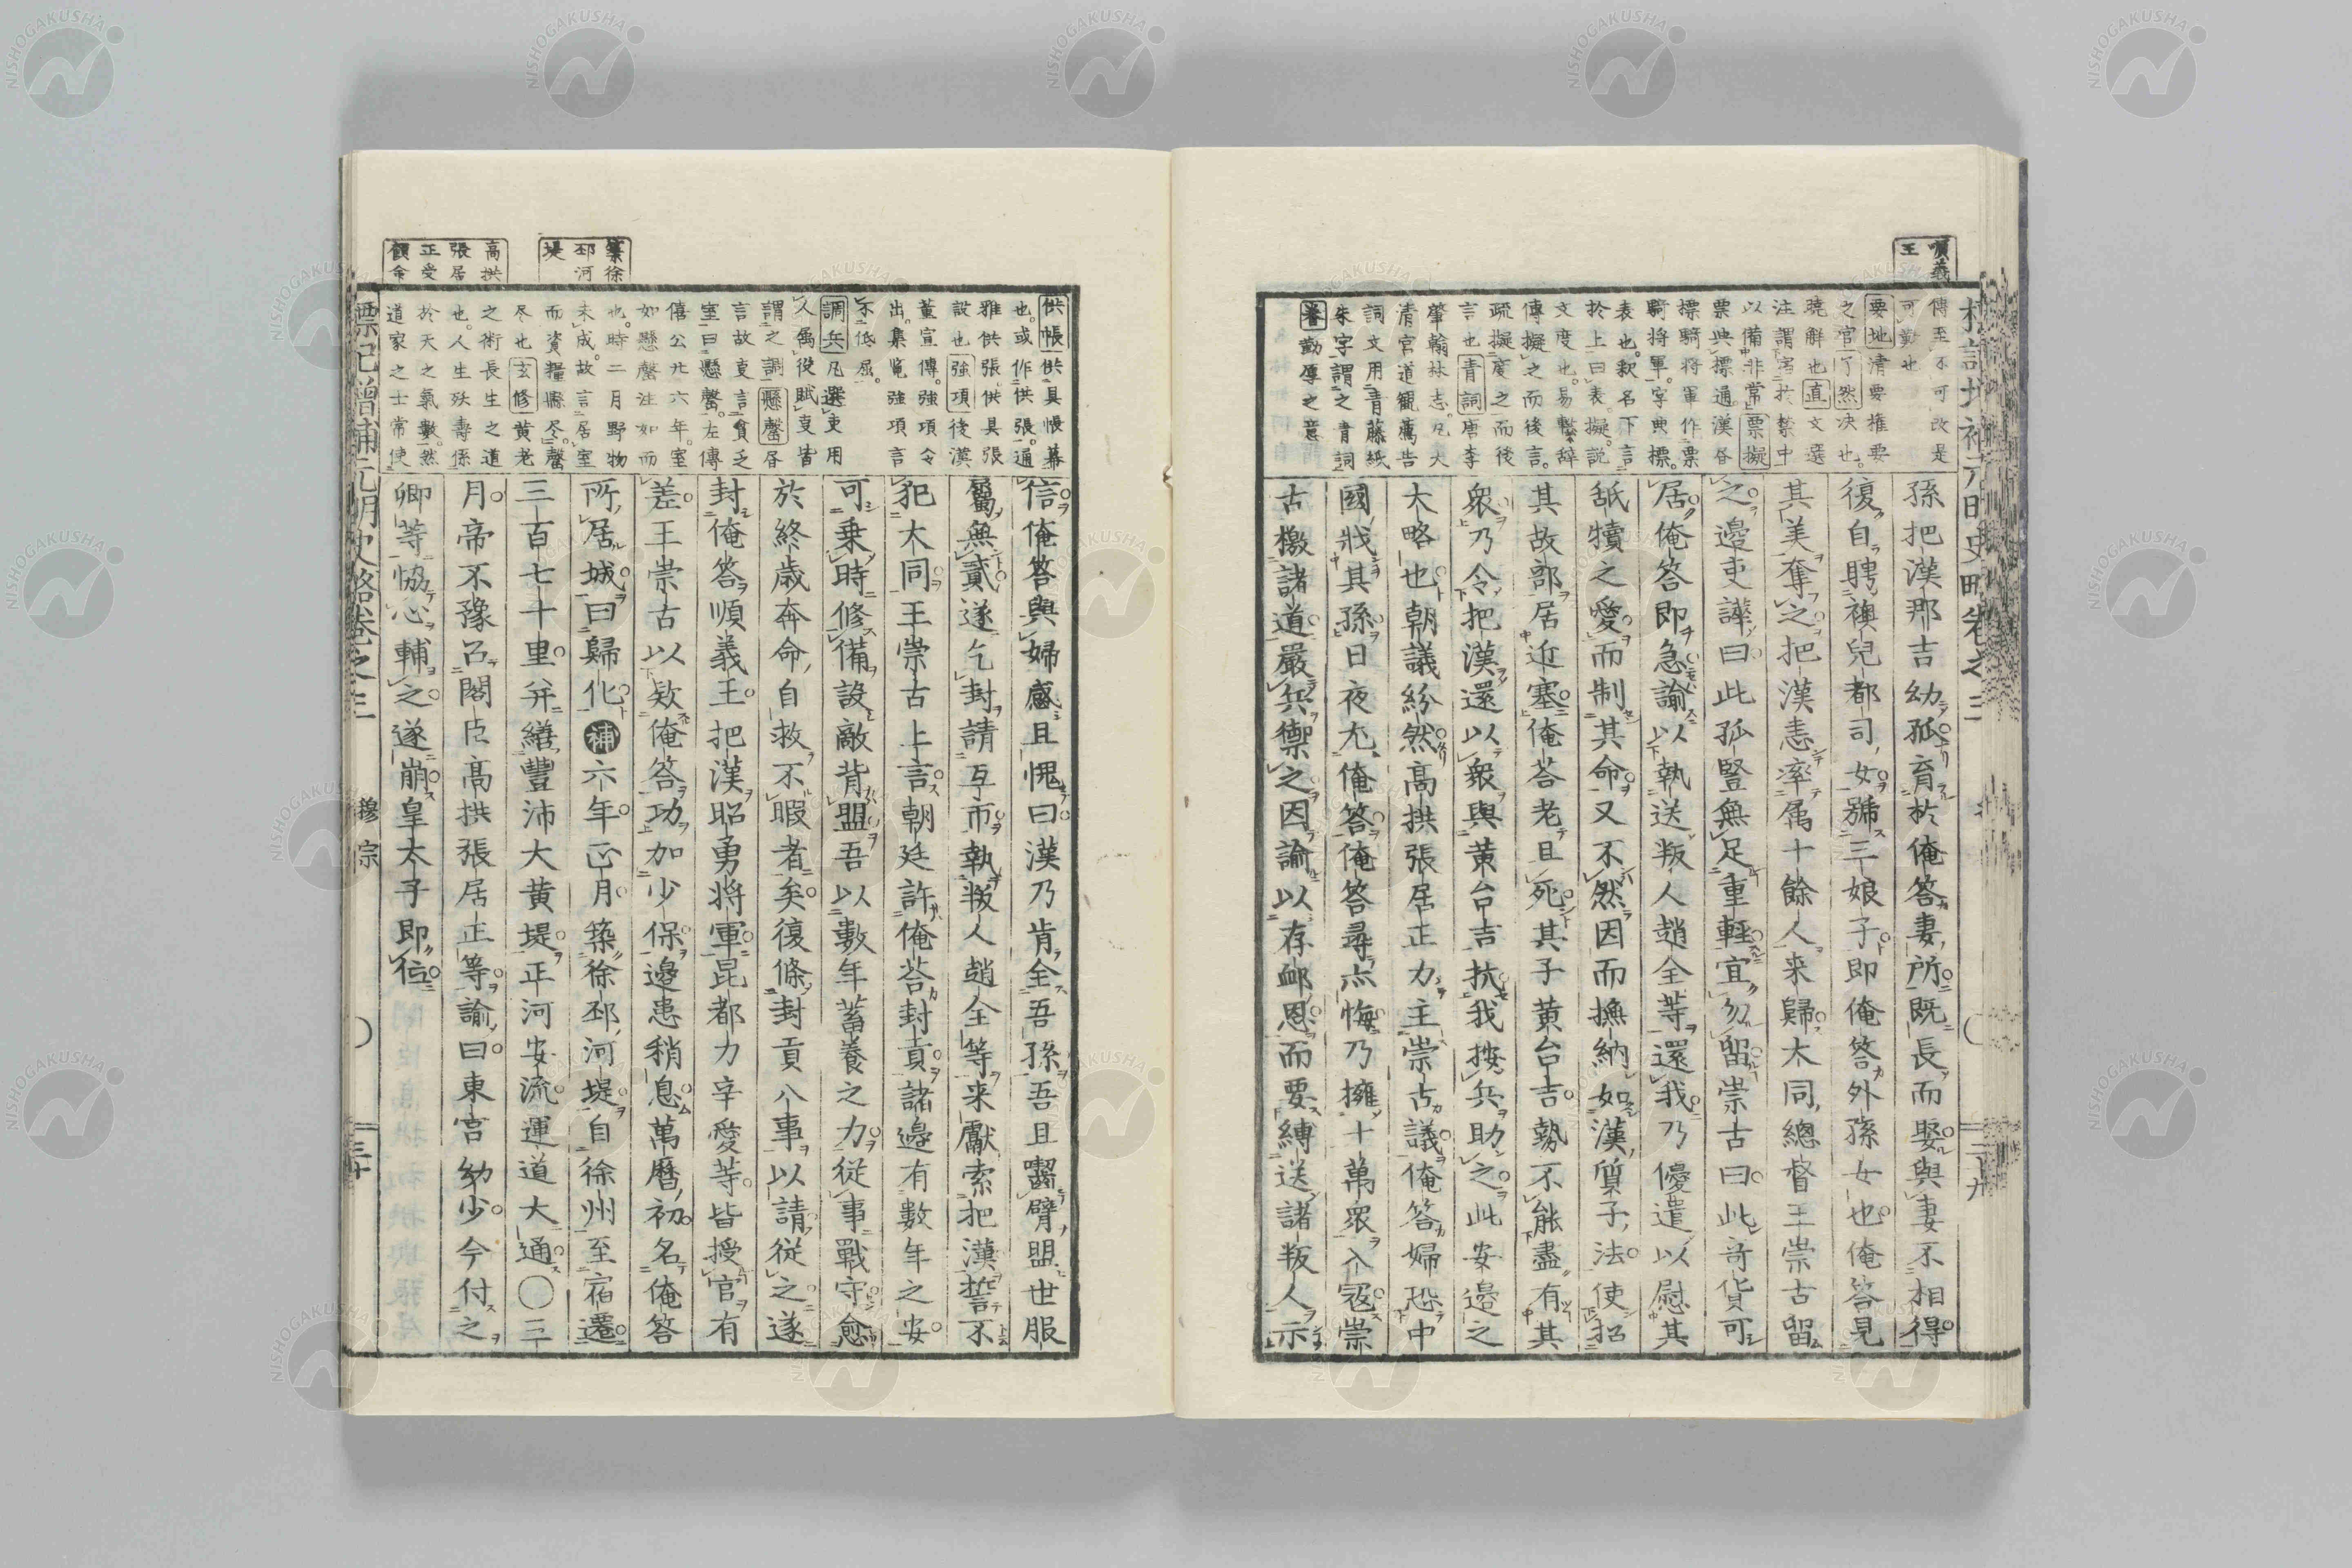 順義
王
傳至不可改是
可勤也
要地清要權要
之官了然決也
曉解也直文選
注謂宿於禁中
以備非常票擬
票與標通漢各
標騎將軍作票
騎將軍字典標
表也釈名下言
於上曰表擬說
文度也易繫辭
傳擬之而後言
疏擬度之而後
言也青詞唐李
肇翰林志凡大
清宮道觀薦告
詞文用青藤紙
朱字謂之青詞
眷勤厚之意
孫把漢那吉幼孤育於俺答妻所既長而娶與妻不相得
復自聘襖兒都司女號三娘子即俺答外孫女也俺答見
其美奪之把漢恚率属十餘人来歸大同總督王崇古留
之邊吏譁曰此孤豎無足重輕宜勿留崇古曰此奇貨可
居俺答即急諭以執送叛人趙全等還我乃優遣以慰其
舐犢之愛而制其命又不然因而撫納如漢質子法使招
其故部居近塞俺荅老且死其子黃台吉勢不能盡有其
衆乃令把漢還以衆與黃台吉抗我按兵助之此安邊之
大略也朝議紛然高拱張居正力主崇古議俺答婦恐中
國戕其孫日夜尤俺答俺答尋亦悔乃擁十萬衆入寇崇
古檄諸道嚴兵禦之因諭以存䘏恩而要縛送諸叛人示
二十九
築徐
邳河
堤
高拱
張居
正受
顧命
供帳供具帳幕
也或作供張通
雅供張供具張
設也強項後漢
董宣傳強項令
出集覧強項言
不低屈
調兵凡選吏用
人為役賦吏皆
謂之調懸罄各
言故吏言貧乏
室曰懸罄左傳
僖公廿六年室
如懸罄注如而
也時二月野物
未成故言居室
而資糧懸尽罄
尽也玄修黄老
之術長生之道
也人生殀壽係
於天之氣數然
道家之士常使
信俺答與婦感且愧曰漢乃肯全吾孫吾且齧臂盟世服
屬無貳遂乞封請互市執叛人趙全等来獻索把漢誓不
犯大同王崇古上言朝廷許俺荅封貢諸邊有數年之安
可乗時修備設敵背盟吾以數年蓄養之力従事戰守愈
於終歳奔命自救不暇者矣復條封貢八事以請従之遂
封俺答順義王把漢昭勇將軍昆都力辛愛等皆授官有
差王崇古以欵俺答功加少保邊患稍息萬暦初名俺答
所居城曰歸化補六年正月築徐邳河堤自徐州至宿遷
三百七十里并繕豐沛大黄堤正河安流運道大通〇三
月帝不豫召閣臣高拱張居正等諭曰東宮幼少今付之
卿等協心輔之遂崩皇太子即位
標記增補元明史略卷之三
穆宗
三十